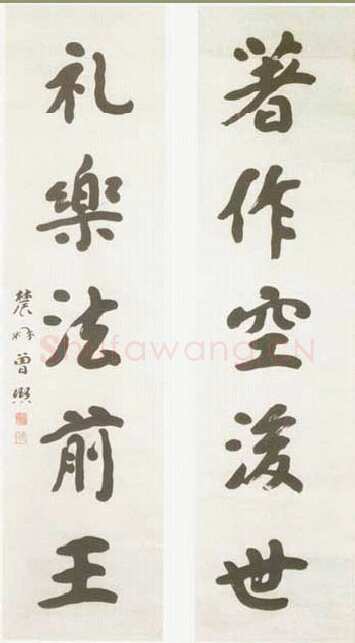 著作空後世
礼樂法前王
農髯曾熙
Shufawang.CN